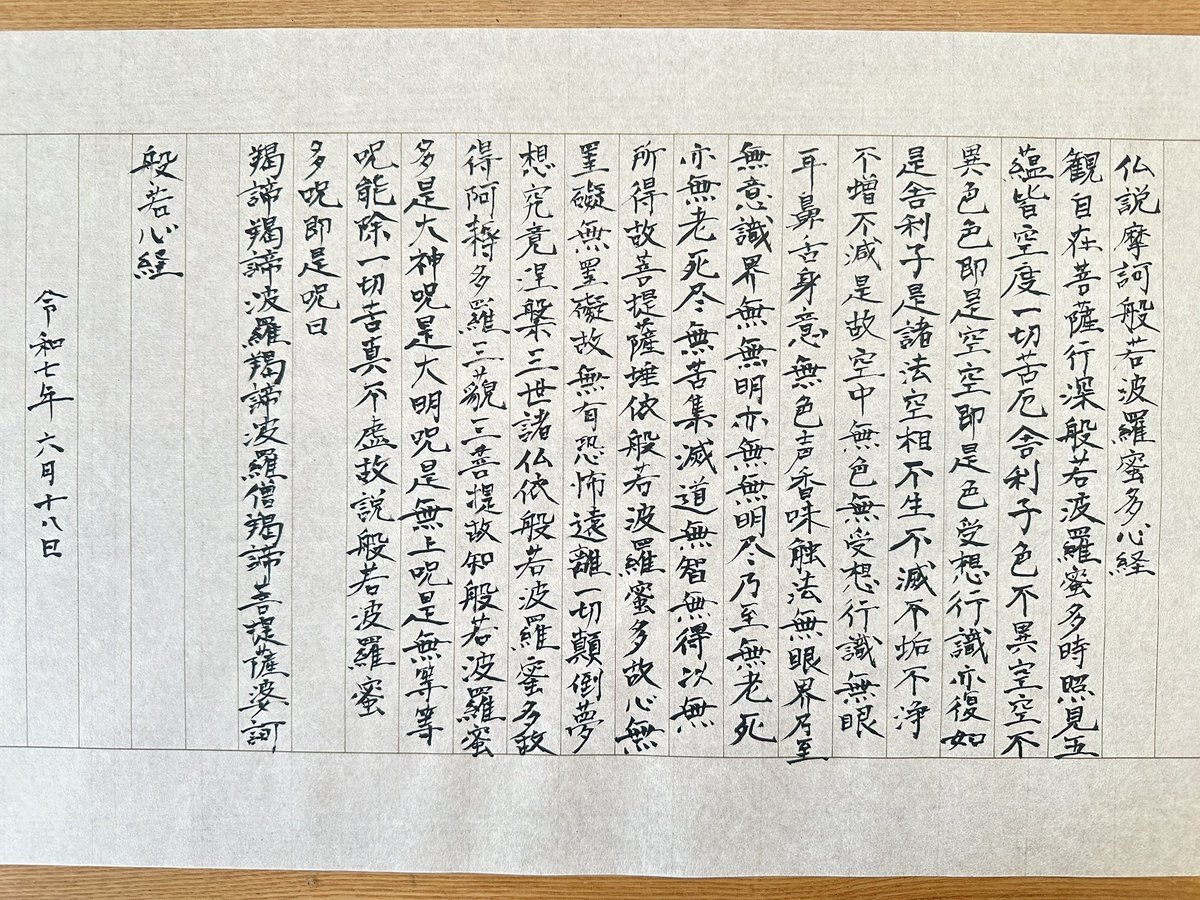 仏説摩訶般若波羅蜜多心経
観自在菩薩行深般若波羅蜜多時照見五
蘊皆空度一切苦厄舎利子色不異空空不
異色色即是空空即是色受想行識亦復如
是舎利子是諸法空相不生不滅不垢不浄
不増不減是故空中無色無受想行識無眼
耳鼻舌身意無色声香味触法無眼界乃至
無意識界無無明亦無無明尽乃至無老死
亦無老死尽無苦集滅道無智無得以無
所得故菩提薩埵依般若波羅蜜多故心無
罣礙無罣礙故無有恐怖遠離一切顛倒夢
想究竟涅槃三世諸仏依般若波羅蜜多故
得阿耨多羅三藐三菩提故知般若波羅蜜
多是大神呪是大明呪是無上呪是無等等
呪能除一切苦真不虚故説般若波羅蜜
多呪即是呪曰
羯諦羯諦波羅羯諦波羅僧羯諦菩提薩婆訶
般若心経
令和七年 六月十八日